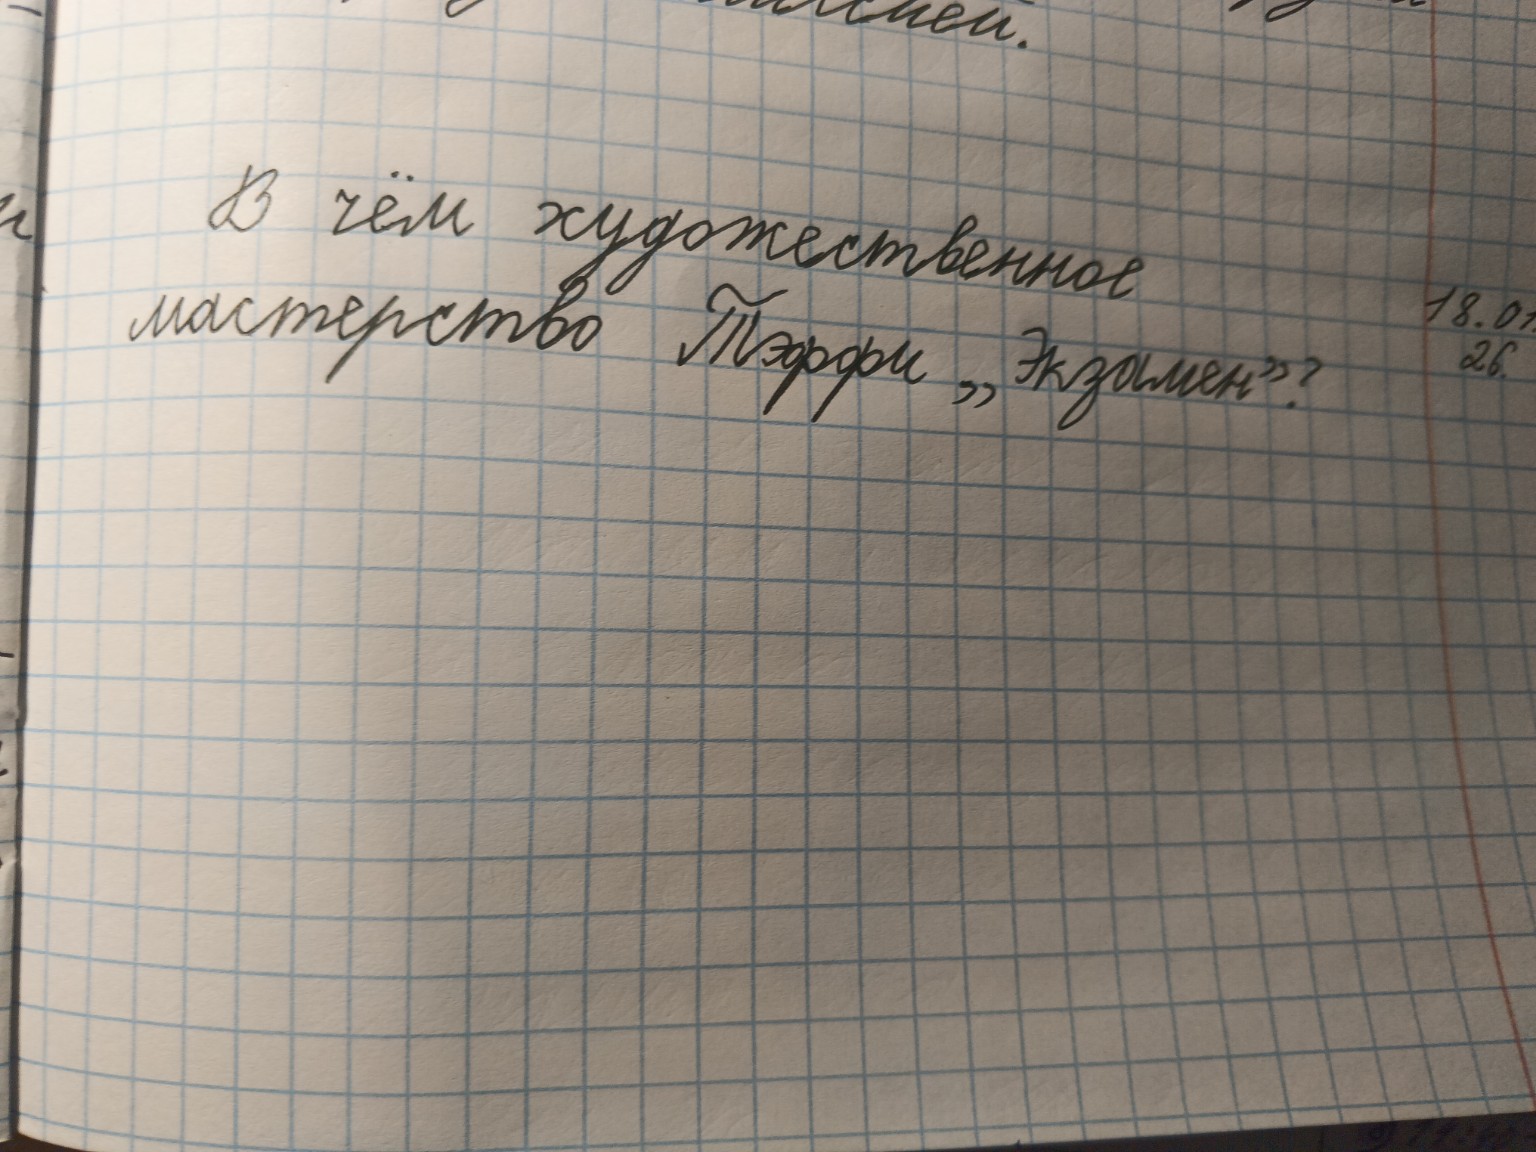 В чём художественное
мастерство Тэффи „Экзамен”?
18.01
26.